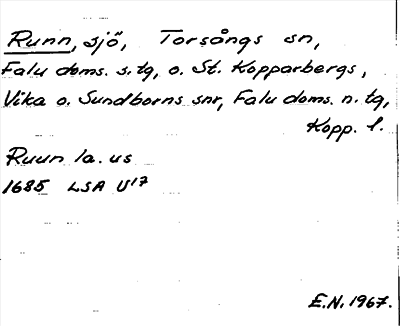 Runn, sjö, Torsångs sn,
Falu doms. s. tg, o. St. Kopparbergs,
Vika o. Sundborns snr, Falu doms. n. tg,
Kopp. l.
Ruun la. us
1685 LSA U17
E.N. 1967.